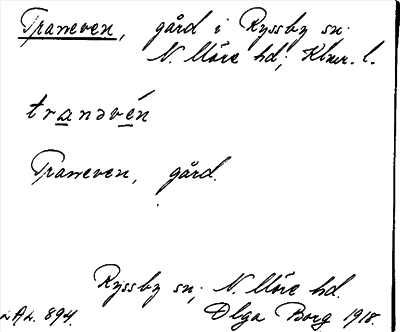 Traneven, gård i Ryssby sn.
N. Möre hd; Klmr. l.
tranəvén
Traneven, gård.
Ryssby sn; N. Möre hd.
LAL. 894. Olga Borg 1918.